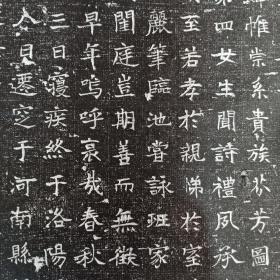 惟崇系貴族芬芳圖
第四女生聞詩禮夙承
至若孝於親悌於室
麗筆臨池嘗詠班家
閨庭豈期善而無徵
早年嗚呼哀哉春秋
三日寢疾終于洛陽
八日遷窆于河南縣